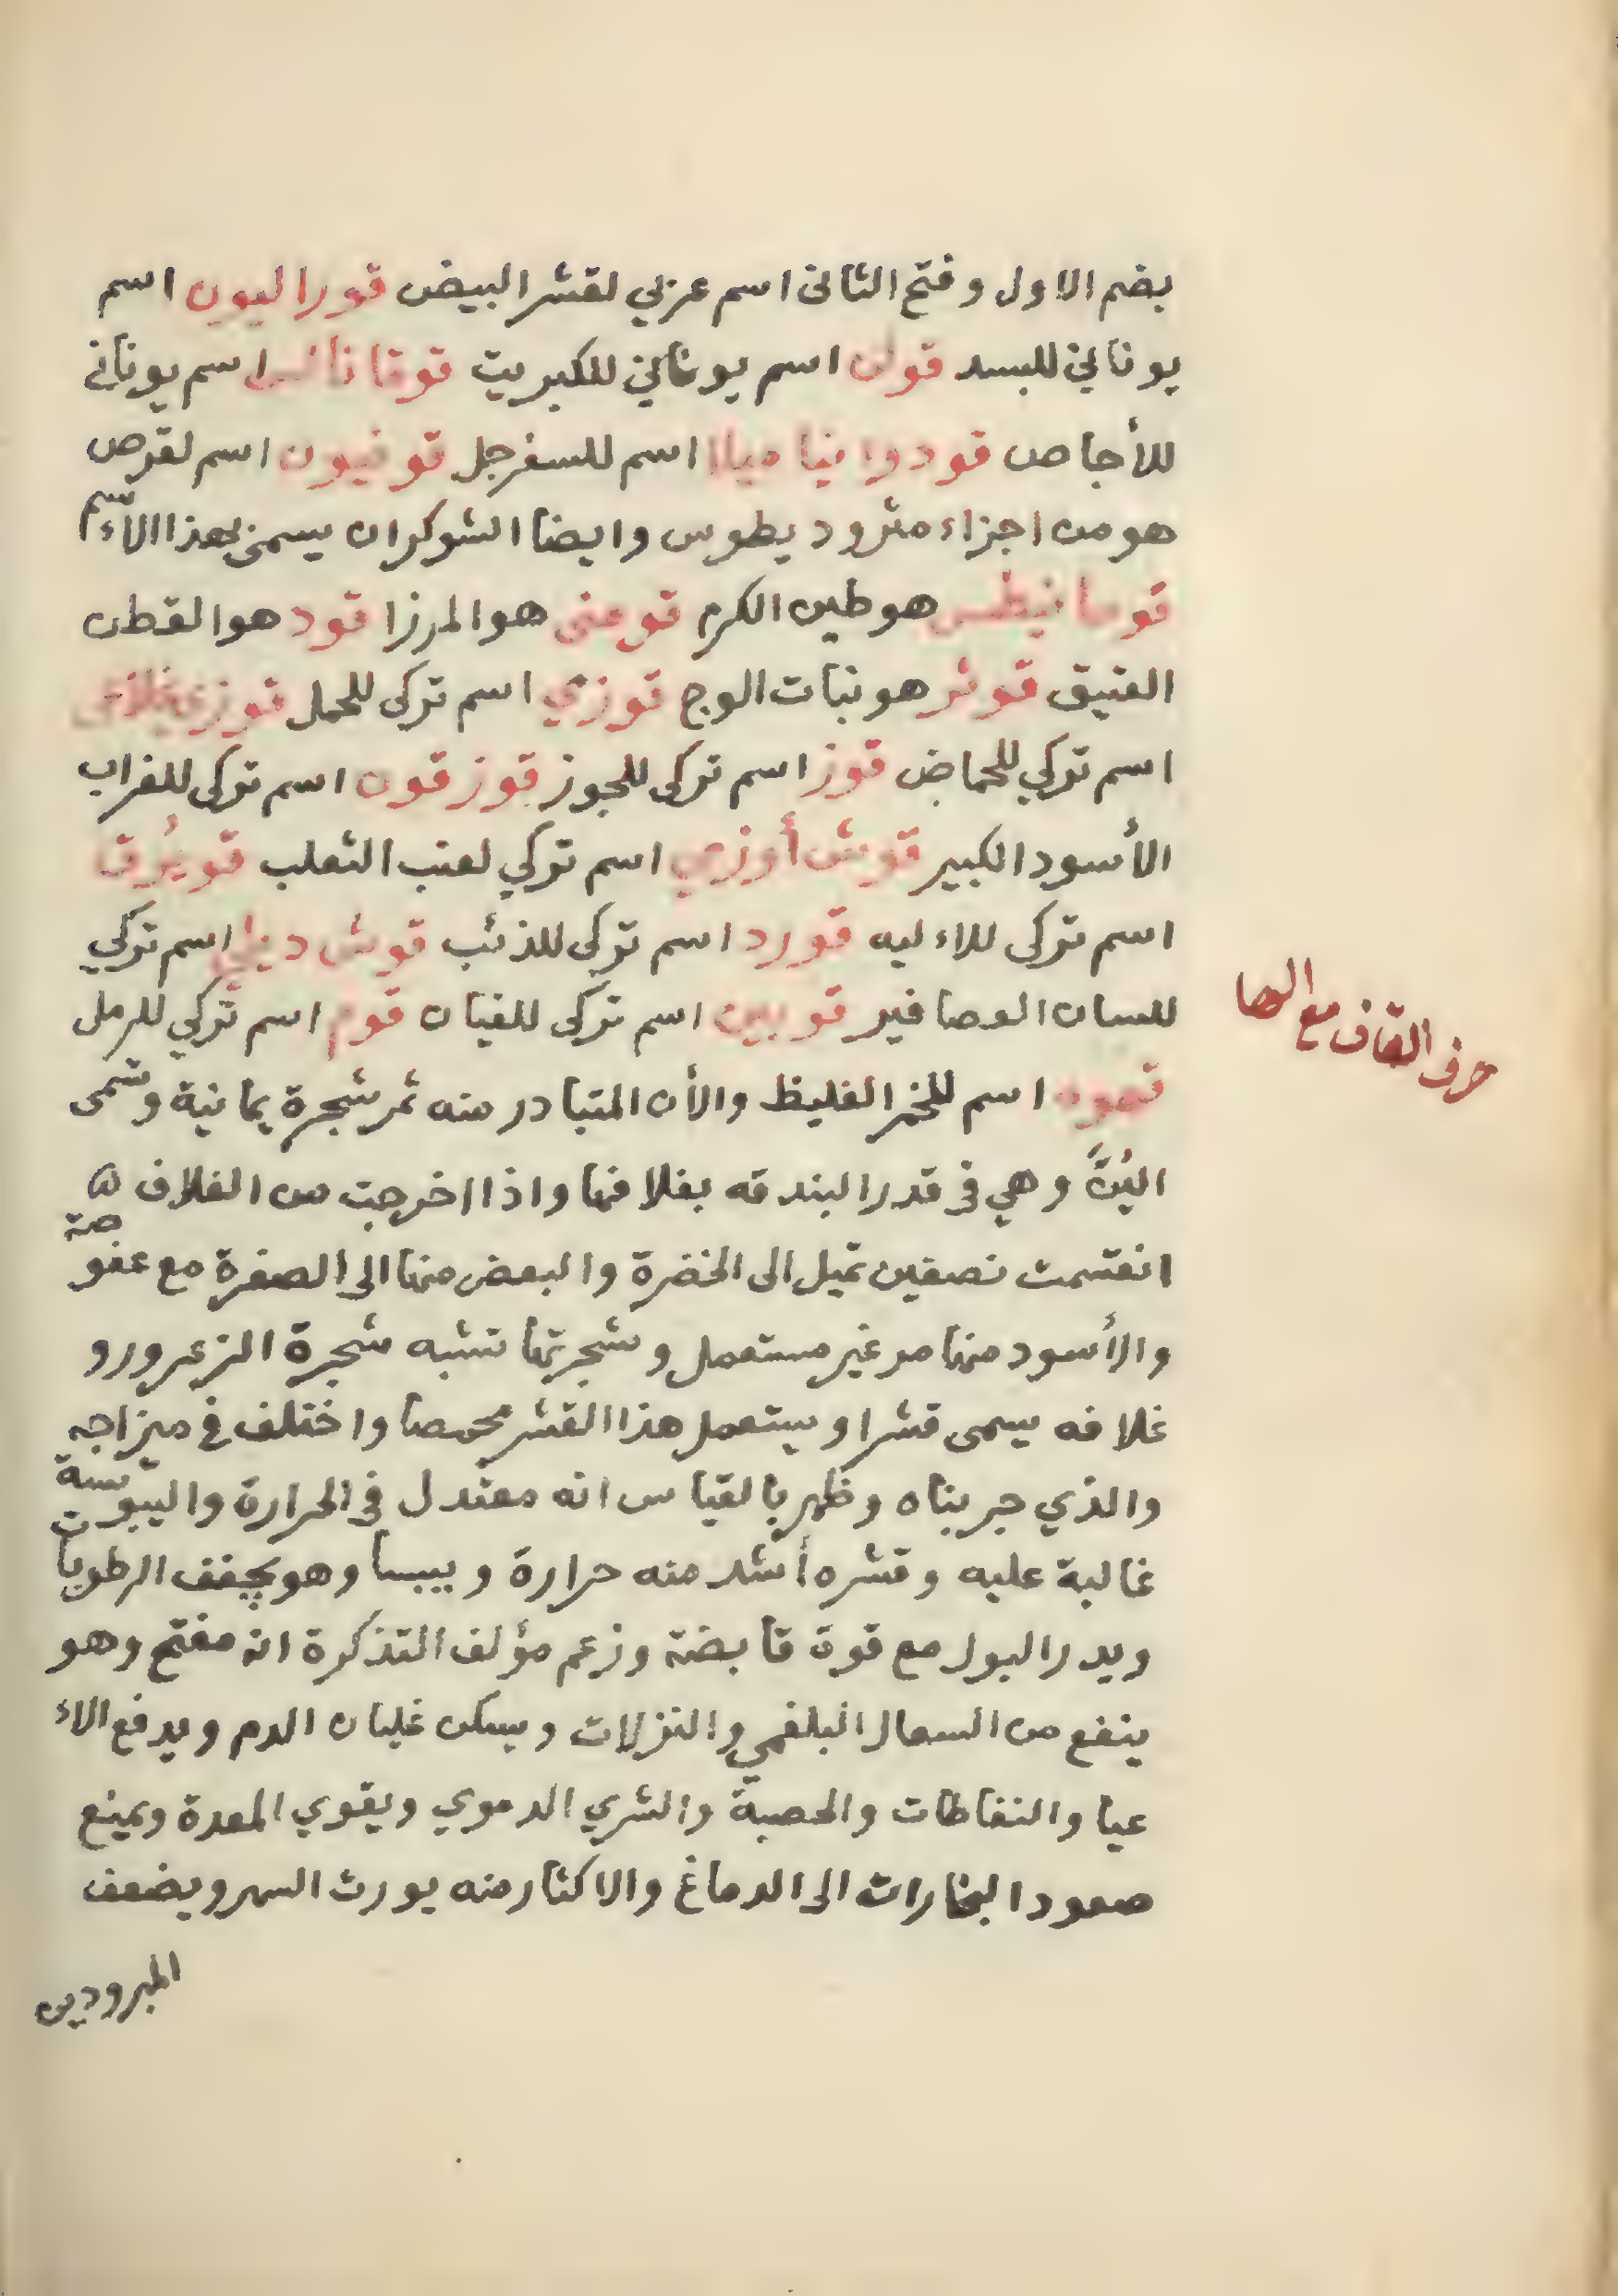 بضم الاول وفتح الثانى اسم عربي لقشر البيض قوراليون اسم
يوناني للبسد قولن اسم يوناني للكبريت اسم يوناني
للأجاص قودوا نيا ميلا اسم للسفرجل قوفيون اسم لقرص
هو من اجزاء مثروديطوس وايضا الشوكران يسمى بهذا الاسم
هو طين الكرم قومنى هو المرزا قود هو القطن
العتيق قوثر هو نبات الوج قوزي اسم تركى للحمل قوزي
اسم تركي للحماض قوز اسم تركى للجوز قوزقون اسم تركى للغراب
الأسود الكبير قوش أوزمي اسم تركي لعنب الثعلب قويُرق
اسم تركى للاءليه قورد اسم تركى للذئب قوش ديلي اسم تركي
للسان العصافير قوبين اسم تركى للغبان قوم اسم تركي للرمل
حرف القاف مع الها
قهوه اسم للخمر الغليظ والأن المتبادر منه ثمر شجرة يمانية وتسمى
البُنّ وهي فى قدر البندقه بغلافها واذا اخرجت من الغلاف
انقسمت نصفين تميل الى الخضرة والبعض منها الى الصفرة مع عفوصة
والأسود منها مر غير مستعمل وشجرتها تشبه شجرة الزعرور و
غلافه يسمى قشرا ويستعمل هذا القشر محمصا واختلف في ميزاجه
والذي جربناه وظهر بالقياس انه معتدل فى الحرارة واليبوسة
غالبة عليه وقشره أشد منه حرارة ويبسا وهو يجفف الرطوبات
ويدر البول مع قوة قابضة وزعم مؤلف التذكرة انه مفتح وهو
ينفع من السعال البلغمي والنزلات ويسكن غليان الدم ويدفع الاء
عيا والنفاطات والحصبة والشري الدموي ويقوي المعدة ويمنع
صعود البخارات الى الدماغ والاكثار منه يورث السهر ويضعف
المبرودين